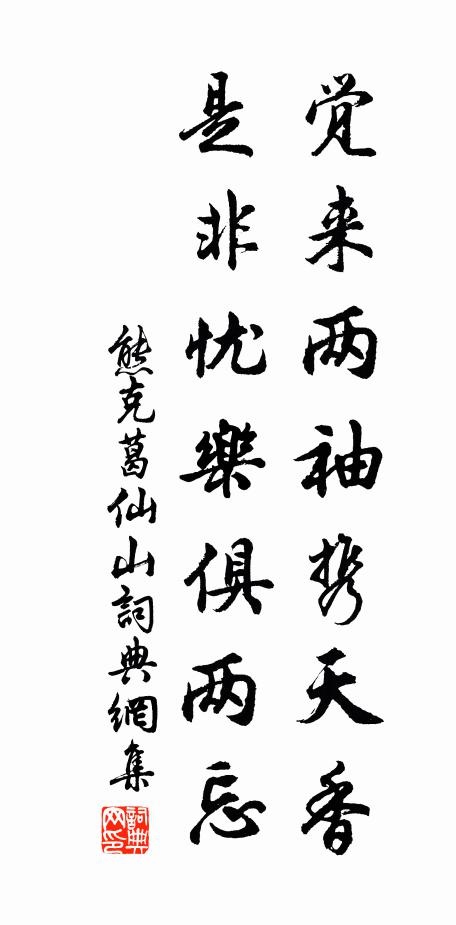 觉来两袖携天香
是非忧樂俱两忘
熊克葛仙山詞典網集
詞典网印